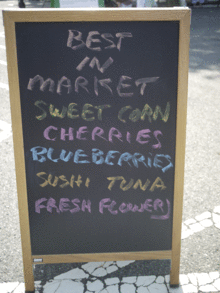 BEST
IN
MARKET
SWEET CORN
CHERRIES
BLUEBERRIES
SUSHI TUNA
FRESH FLOWERS